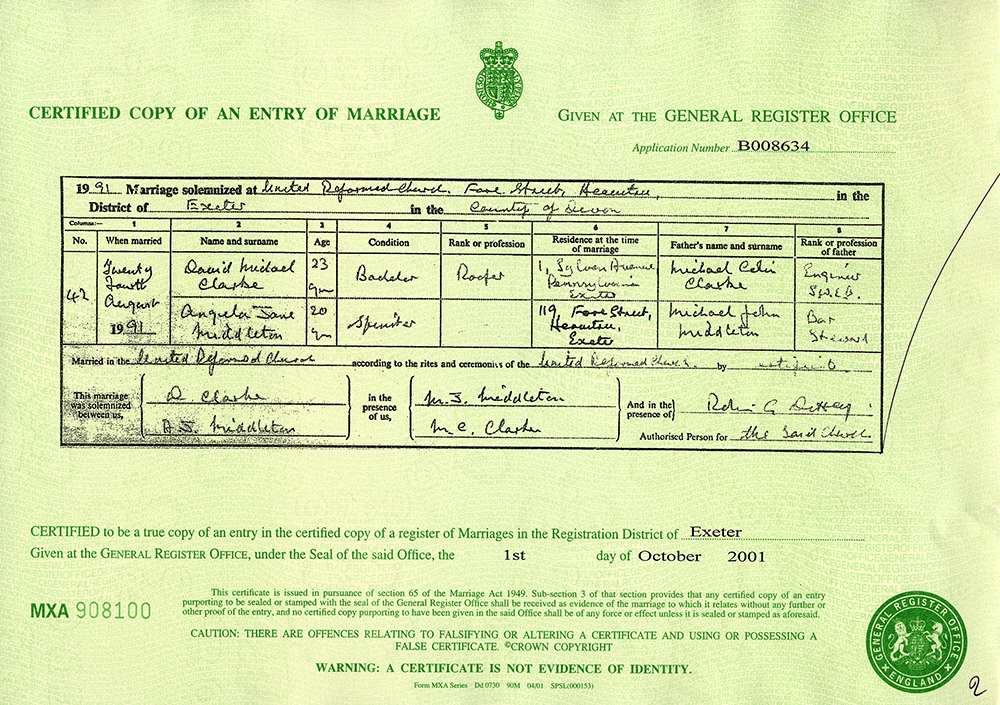 CERTIFIED COPY OF AN ENTRY OF MARRIAGE
GIVEN AT THE GENERAL REGISTER OFFICE
Application Number B008634
1991 Marriage solemnized at United Reformed Church, Fore Street, Heavitree, in the
District of Exeter in the County of Devon
Columns:— 1 2 3 4 5 6 7 8
No. When married Name and surname Age Condition Rank or profession Residence at the time of marriage Father's name and surname Rank or profession of father
42
Twenty
Fourth
August
1991
David Michael
Clarke
23
yrs
Bachelor
Roofer
1, Sylvan Avenue
Pennsylvania
Exeter
Michael Colin
Clarke
Engineer
S.W.E.B.
Angela Jane
Middleton
20
yrs
Spinster
119, Fore Street,
Heavitree,
Exeter
Michael John
Middleton
Bar
Steward
Married in the United Reformed Church according to the rites and ceremonies of the United Reformed Church by certificate
This marriage
was solemnized
between us,
D Clarke
A J Middleton
in the
presence
of us,
M. J. Middleton
M C. Clarke
And in the
presence of
Authorised Person for the said Church
CERTIFIED to be a true copy of an entry in the certified copy of a register of Marriages in the Registration District of Exeter
Given at the GENERAL REGISTER OFFICE, under the Seal of the said Office, the 1st day of October 2001
MXA 908100
This certificate is issued in pursuance of section 65 of the Marriage Act 1949. Sub-section 3 of that section provides that any certified copy of an entry
purporting to be sealed or stamped with the seal of the General Register Office shall be received as evidence of the marriage to which it relates without any further or
other proof of the entry, and no certified copy purporting to have been given in the said Office shall be of any force or effect unless it is sealed or stamped as aforesaid.
CAUTION: THERE ARE OFFENCES RELATING TO FALSIFYING OR ALTERING A CERTIFICATE AND USING OR POSSESSING A
FALSE CERTIFICATE. ©CROWN COPYRIGHT
WARNING: A CERTIFICATE IS NOT EVIDENCE OF IDENTITY.
Form MXA Series Dd 0730 90M 04/01 SPSL(000153)
GENERAL REGISTER OFFICE
ENGLAND
2